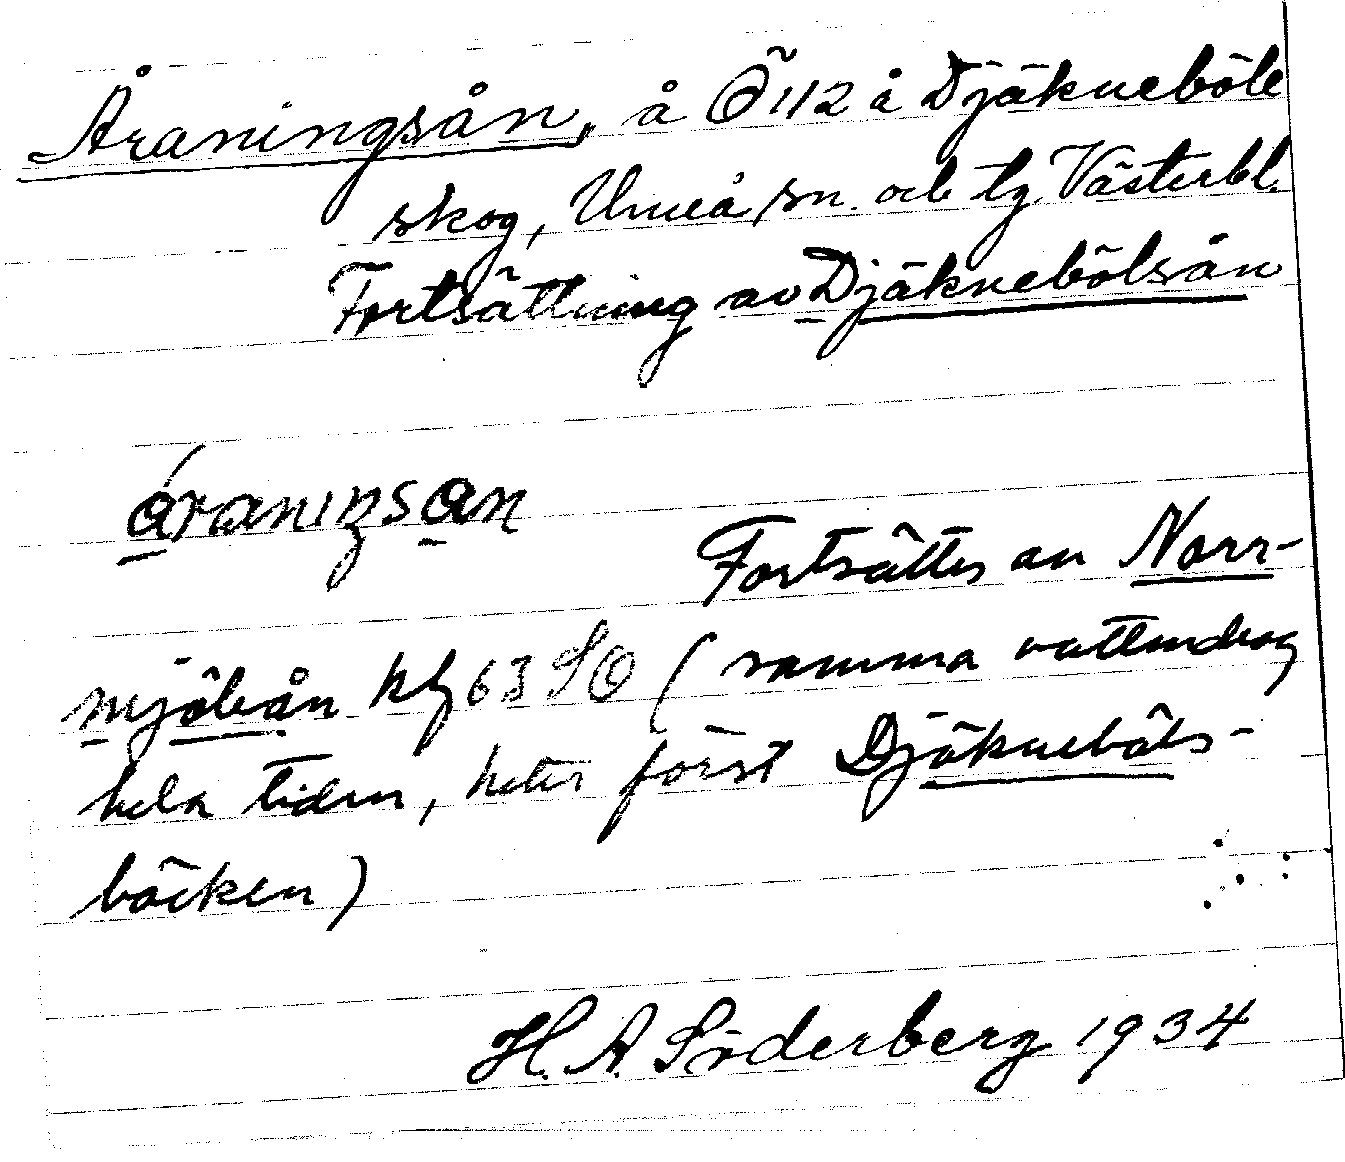 Åraningsån, å Ö 112 å Djäkneböle
skog, Umeå sn. och tg. Västerbl.
Fortsättning av Djäknebölsån
áraniŋsan
Fortsättes av Norr-
mjöleån kbl 63 SO (samma vattendrag
hela tiden, heter först Djäkneböls-
bäcken)
H. A. Söderberg 1934